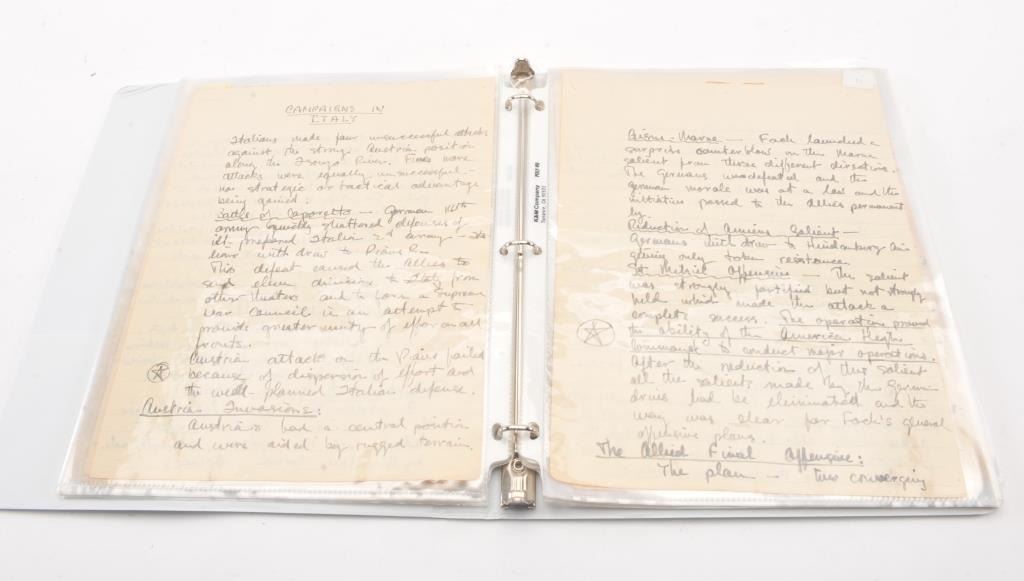 CAMPAIGNS IN
ITALY
Italians made four unsuccessful attacks
against the strong Austrian position
along the Isonzo River. Five more
attacks were equally unsuccessful -
no strategic or tactical advantage
being gained.
Battle of Caporetto - German 14th
army quickly shattered defenses of
ill-prepared Italian 2d army -
with draw to Piave R -
This defeat caused the Allies to
send eleven divisions to Italy from
other theaters and to form a Supreme
War Council in an attempt to
provide greater unity of effort on all
fronts.
Austrian attack on the Piave failed
because of dispersion of effort and
the well-planned Italian defense.
Austrian Invasions:
Austrians had a central position
and were aided by rugged terrain.
K&M Company
Torrance, CA 90503
Aisne-Marne - Foch launched a
surprise counterblow on the Marne
salient from three different directions.
The Germans were defeated and the
german morale was at a low and the
initiative passed to the Allies permanent
ly.
Reduction of Amiens Salient -
Germans with draw to Hindenburg line
giving only token resistance.
St. Mihiel Offensive - The salient
was strongly fortified but not strongly
held which made the attack a
complete success. The operation proved
the ability of the American High
Command to conduct major operations.
After the reduction of this salient
all the salients made by the German
drives had been eliminated and the
way was clear for Foch's general
offensive plans.
The Allied Final Offensive:
The plan - two converging